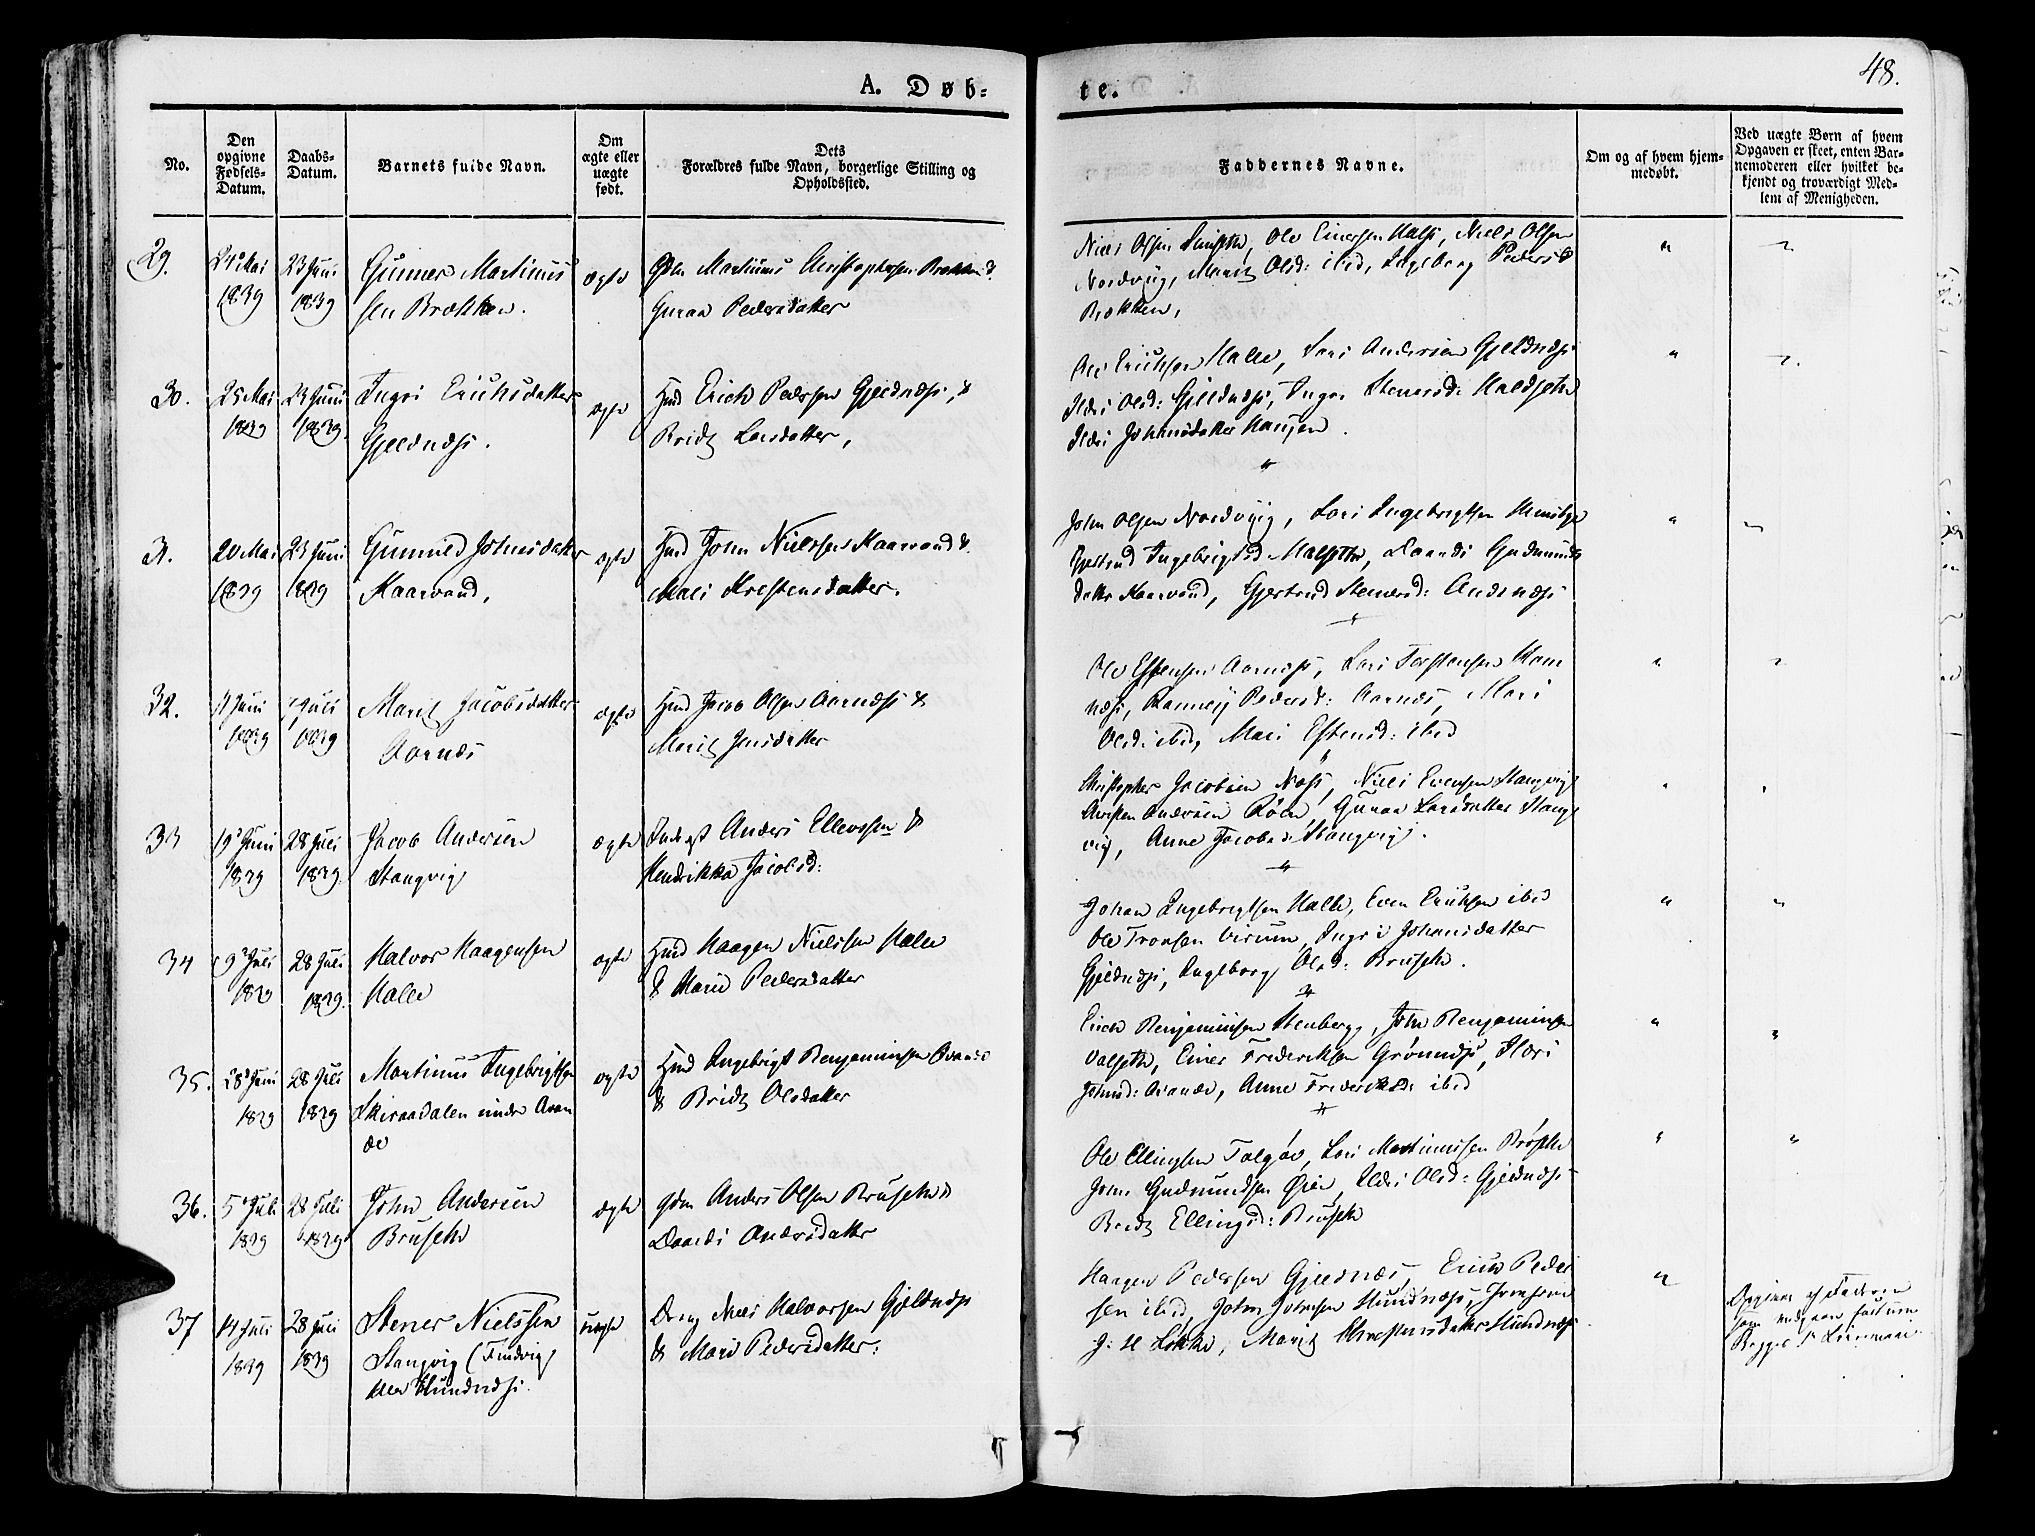 48.
A. Døb-
te.
No.
Den
opgivne
Fødsels-
Datum.
Daabs-
Datum.
Barnets fulde Navn.
Om
ægte eller
uægte
født.
Dets
Forældres fulde Navn, borgerlige Stilling og
Opholdssted.
Faddernes Navne.
Om og af hvem hjem-
medøbt.
Ved uægte Børn af hvem
Opgaven er skeet, enten Bar-
nemoderen eller hvilket be-
kjendt og troværdigt Med-
lem af Menigheden.
29.
Mai
1839
23 Juni
1839
Gunner Martinus
sen Brækken.
ægte
Martinus Christophersen Brækken &
Guraa Pedersdatter
Niels Olsen Ole Einersen Halse, Niels Olsen
Nordvig, Marit Olsd: ibid, Ingeborg Pedersd
Brækken,
30.
25 Mai
1839
23 Juni
1839.
Ingri Erichsdatter
Gjeldnæs.
ægte
Hmd Erich Pedersen Gjeldnæs, &
Bridt Larsdatter,
Ole Erichsen Halle, Lars Andersen Gjeldnæs
Ildri Olsd: Gjeldnæs, Ingri Stenersd:
Ildri Johnsdatter Haugen.
31.
20 Mai
1839
23 Juni
1839
Gunned Johnsdatter
Kaarvand,
ægte
Hmd John Nielssen Kaarvand &
Mali Kristensdatter.
John Olsen Nordvig, Lars Ingebrigtsen
Gjertrud Ingebrigtsd Halseth, Daardi Gudmunds
datter Kaarvand, Gjertrud Stenersd: Aasnæs
32.
Juni
1839
Juli
1839
Marit Jacobsdatter
Aarnæs
ægte
Hmd Jacob Olsen Aarnæs &
Marit Jensdatter
Ole Estensen Aarnæs, Lars Torstensen Ham
næs, Rannei Pedersd: Aarnæs, Mari
Olsd: ibid, Mari Estensd: ibid
33
19 Juni
1839
28 Juli
1839.
Jacob Andersen
Stangvig
ægte
Inderst Anders Ellevssen &
Hendrikka Jacobsd:
Christopher Jacobsen Næs, Niels Evensen Stangvig
Christen Andersen Røen, Guraa Larsdatter Stang
vig, Anne Jacobsd: Stangvig.
34
9 Juli
1839
28 Juli
1839.
Halvor Haagensen
Halle
ægte
Hmd Haagen Nielssen Halle
& Marit Pedersdatter
Johan Ingebrigtsen Halle, Even Erichsen ibid
Ole Tronsen Virum, Ingri Johansdatter
Gjeldnæs, Ingeborg Olsd: Bruseth.
35.
28 Juni
1839
28 Juli
1839
Martinus Ingebrigtsen
Skiraadalen under Aran
de
ægte
Hmd Ingebrigt Benjaminsen
& Bridt Olsdatter
Erich Benjaminsen Stenberg, John Benjaminsen
Valseth, Einer Frederiksen Grønnæs, Ildri
Johnsd: Anne Frederiksd: ibid
36.
5 Juli
1839
28 Juli
1839
John Andersen
Bruseth
ægte
Gdm Anders Olsen Bruseth &
Daardi Andersdatter
Ole Ellingsen Talgøe, Lars Martinussen Brøske
John Gudmundsen Øien, Ildri Olsd: Gjeldnæs
Bridt Ellingsd: Bruseth
37
Juli
1839
28 Juli
1839
Stener Nielssen
Stangvig (Findvig
Hundnæs.
uægte
Dreng Niels Halvorsen Gjeldnæs
& Mari Pedersdatter.
Haagen Pedersen Gjeldnæs, Erich Peder
sen ibid, John Johnsen Hundnæs, Jomfrue
J: H Løkke, Marit Christensdatter Hundnæs
Opgivet af Faderen